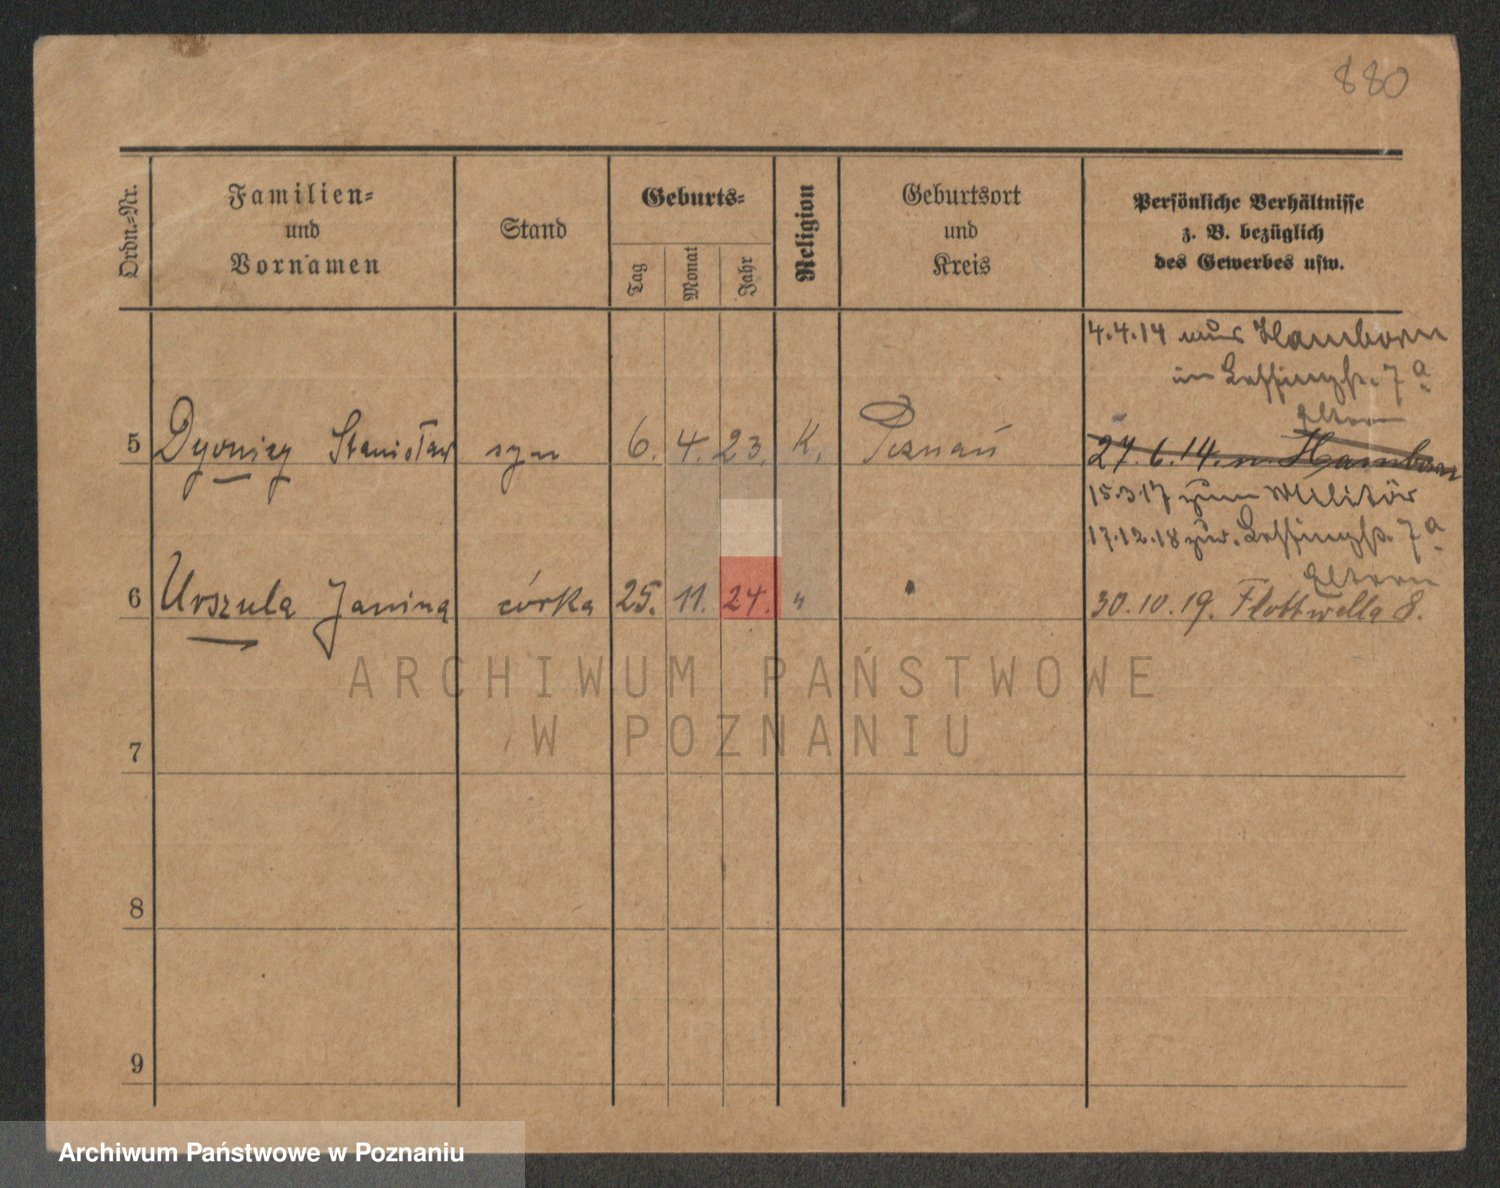 880
Ordn.-Nr.
Familien-
und
Vornamen
Stand
Geburts-
Tag
Monat
Jahr
Religion
Geburtsort
und
Kreis
Persönliche Verhältnisse
z. B. bezüglich
des Gewerbes usw.
4.4.14 aus Hamborn
in Lessingstr. 7a
Eltern
5 Dyonizy Stanisław syn 6. 4. 23. K. Poznań
27.6.14. n. Hamborn
15.3.17 zum Militär
17.12.18 zur. Lessingstr. 7a
Eltern
6 Urszula Janina córka 25. 11. 24. " "
30.10.19. Flottwella 8.
7
8
9
ARCHIWUM PAŃSTWOWE
W POZNANIU
Archiwum Państwowe w Poznaniu